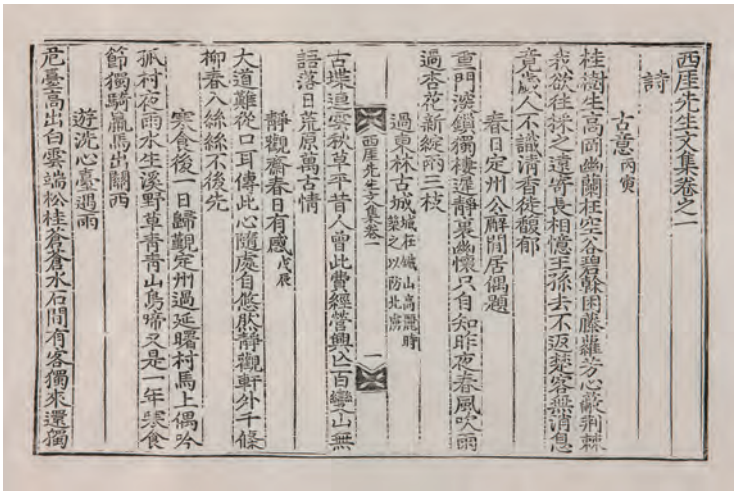 西厓先生文集卷之一
詩
古意丙寅
桂樹生高岡幽蘭在空谷碧幹困藤蘿芳心蔽荊棘
我欲往採之遠寄長相憶王孫去不返楚客無消息
竟歲人不識清香徒馥郁
春日定州公廨閒居偶題
重門深鎖獨棲遲靜裏幽懷只自知昨夜春風吹雨
過杏花新綻兩三枝
過東林古城城在鐵山高麗時
築之以防北虜
西厓先生文集卷一 一
古堞連雲秋草平昔人曾此費經營興亡百變山無
語落日荒原萬古情
靜觀齋春日有感戊辰
大道難從口耳傳此心隨處自悠然靜觀軒外千條
柳春入絲絲不後先
寒食後一日歸覲定州過延曙村馬上偶吟
孤村夜雨水生溪野草靑靑山鳥啼又是一年寒食
節獨騎羸馬出關西
遊洗心臺遇雨
危臺高出白雲端松桂蒼蒼水石間有客獨來還獨